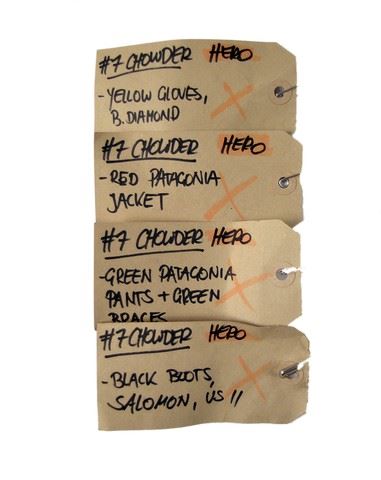 #7 CHOWDER HERO
- YELLOW GLOVES,
B. DIAMOND
#7 CHOWDER HERO
- RED PATAGONIA
JACKET
#7 CHOWDER HERO
- GREEN PATAGONIA
PANTS + GREEN
BRACES
#7 CHOWDER HERO
- BLACK BOOTS,
SALOMON, US 11